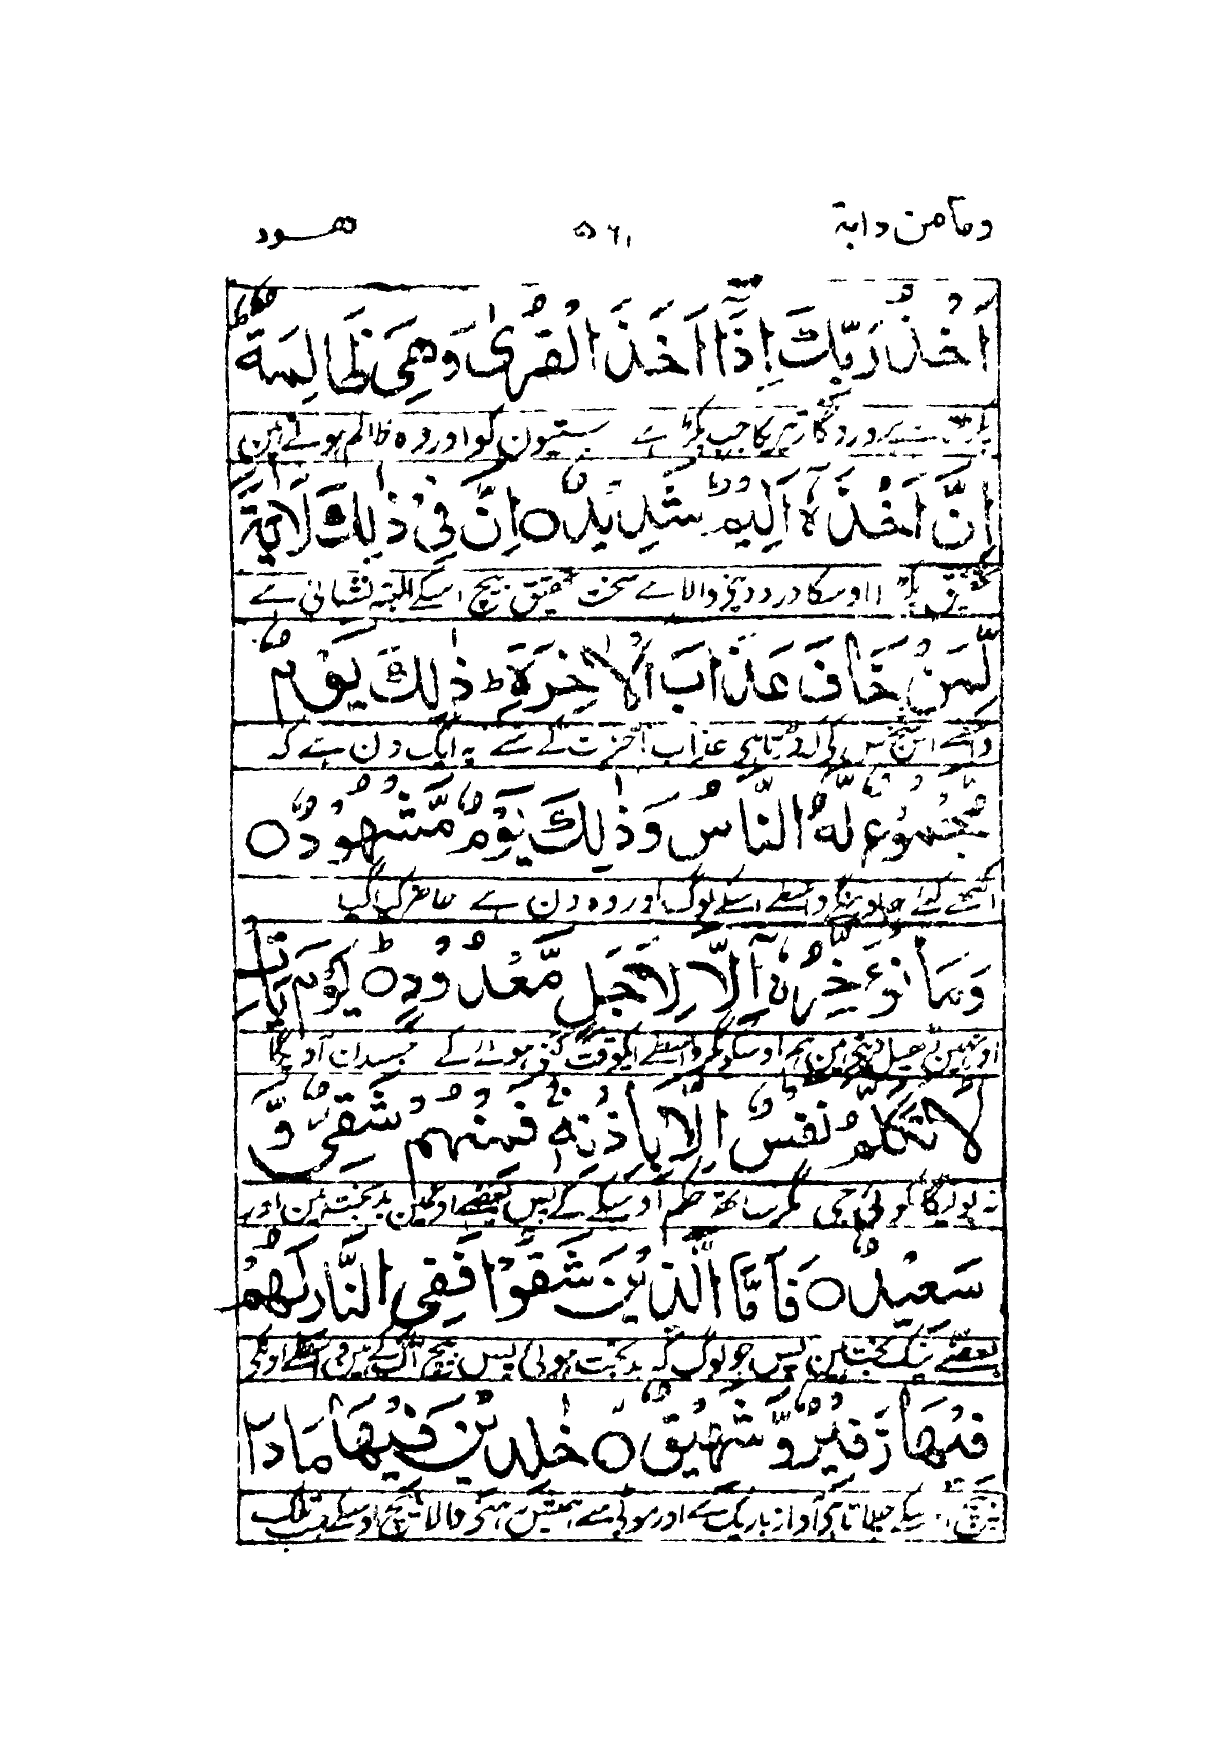 ومآ من دابة ۵۶۱ هود
اَخْذُ رَبِّكَ اِذَآ اَخَذَ الْقُرٰى وَهِىَ ظَالِمَةٌ
پروردگار تیرے کا جب پکڑتا ہے بستیون کو اور وہ ظالم ہوتے ہین
اِنَّ اَخْذَهٗٓ اَلِيْمٌ شَدِيْدٌ ۝ اِنَّ فِىْ ذٰلِكَ لَاٰيَةً
تحقیق پکڑ اوسکا درد دینے والا ہے سخت تحقیق بیچ اسکے البتہ نشانی ہے
لِّمَنْ خَافَ عَذَابَ الْاٰخِرَةِ ؕ ذٰلِكَ يَوْمٌ
واسطے اس شخص کے کہ ڈرتا ہی عذاب آخرت کے سے یہ ایک دن ہے کہ
مَّجْمُوْعٌ لَّهُ النَّاسُ وَذٰلِكَ يَوْمٌ مَّشْهُوْدٌ ۝
اکٹھے کیئے جاوینگے واسطے اسکے لوگ اور وہ دن ہے حاضر کیا گیا
وَمَا نُؤَخِّرُهٗٓ اِلَّا لِاَجَلٍ مَّعْدُوْدٍ ۝ؕ يَوْمَ يَاْتِ
اور نہین ڈھیل دیتے ہین ہم اوسکو مگر واسطے ایکوقت گنے ہوئے کے جسدن آویگا
لَا تَكَلَّمُ نَفْسٌ اِلَّا بِاِذْنِهٖ ۚ فَمِنْهُمْ شَقِىٌّ وَّ
نہ بولیگا کوئی جی مگر ساتھ حکم اوسکے کے پس بعضے اونمین بدبخت ہین اور
سَعِيْدٌ ۝ فَاَمَّا الَّذِيْنَ شَقُوْا فَفِى النَّارِ لَهُمْ
بعضے نیک بخت ہین پس جو لوگ کہ بدبخت ہوئی پس بیچ آگ کے ہین واسطے اونکے
فِيْهَا زَفِيْرٌ وَّشَهِيْقٌ ۝ خٰلِدِيْنَ فِيْهَا مَا دَا
بیچ اسکے چلانا آواز باریک سے اور موٹی سے ہمیشہ رہنے والا بیچ اوسکے جب تلک